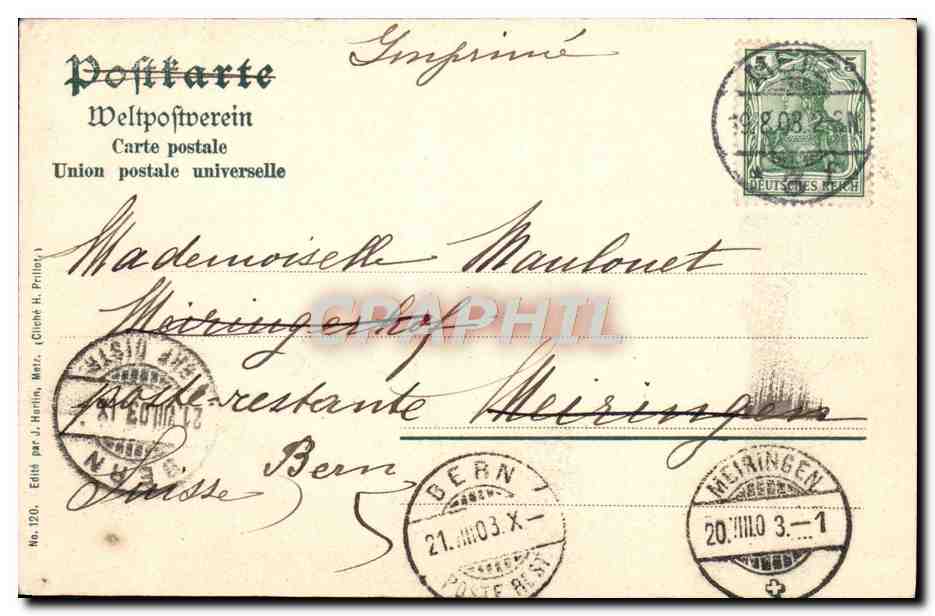 Imprimé
Postkarte
Weltpostverein
Carte postale
Union postale universelle
5 5
9.8.03. 2-3N
DEUTSCHES REICH
Mademoiselle Maulouet
Meiringerhof
poste-restante Meiringen
Suisse Bern
5
CPAPHIL
BERN
21.VIII03.X-
BRF. DIST.
BERN
21.VIII03.X-
POSTE REST.
MEIRINGEN
20.VIII.0 3.-1
No. 120. Edité par J. Hurlin, Metz. (Cliché H. Prillot.)